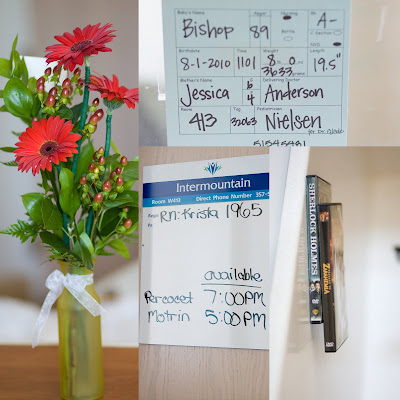 Baby's Name
Bishop
Apgar
89
Nursing
Bottle
A-
C-Section
SVD
Birthdate
Time
Weight
Length
8-1-2010
1101
8 lb 0 oz
3633 grams
19.5"
Mother's Name
Delivering Doctor
Jessica
Anderson
Room
Tag
Pediatrician
413
32063
Nielsen
for Dr.
Intermountain
Room W413
Direct Phone Number 357-5
RN: Krista 1965
available
Percocet 7:00PM
Motrin 5:00PM
SHERLOCK HOLMES
DVD